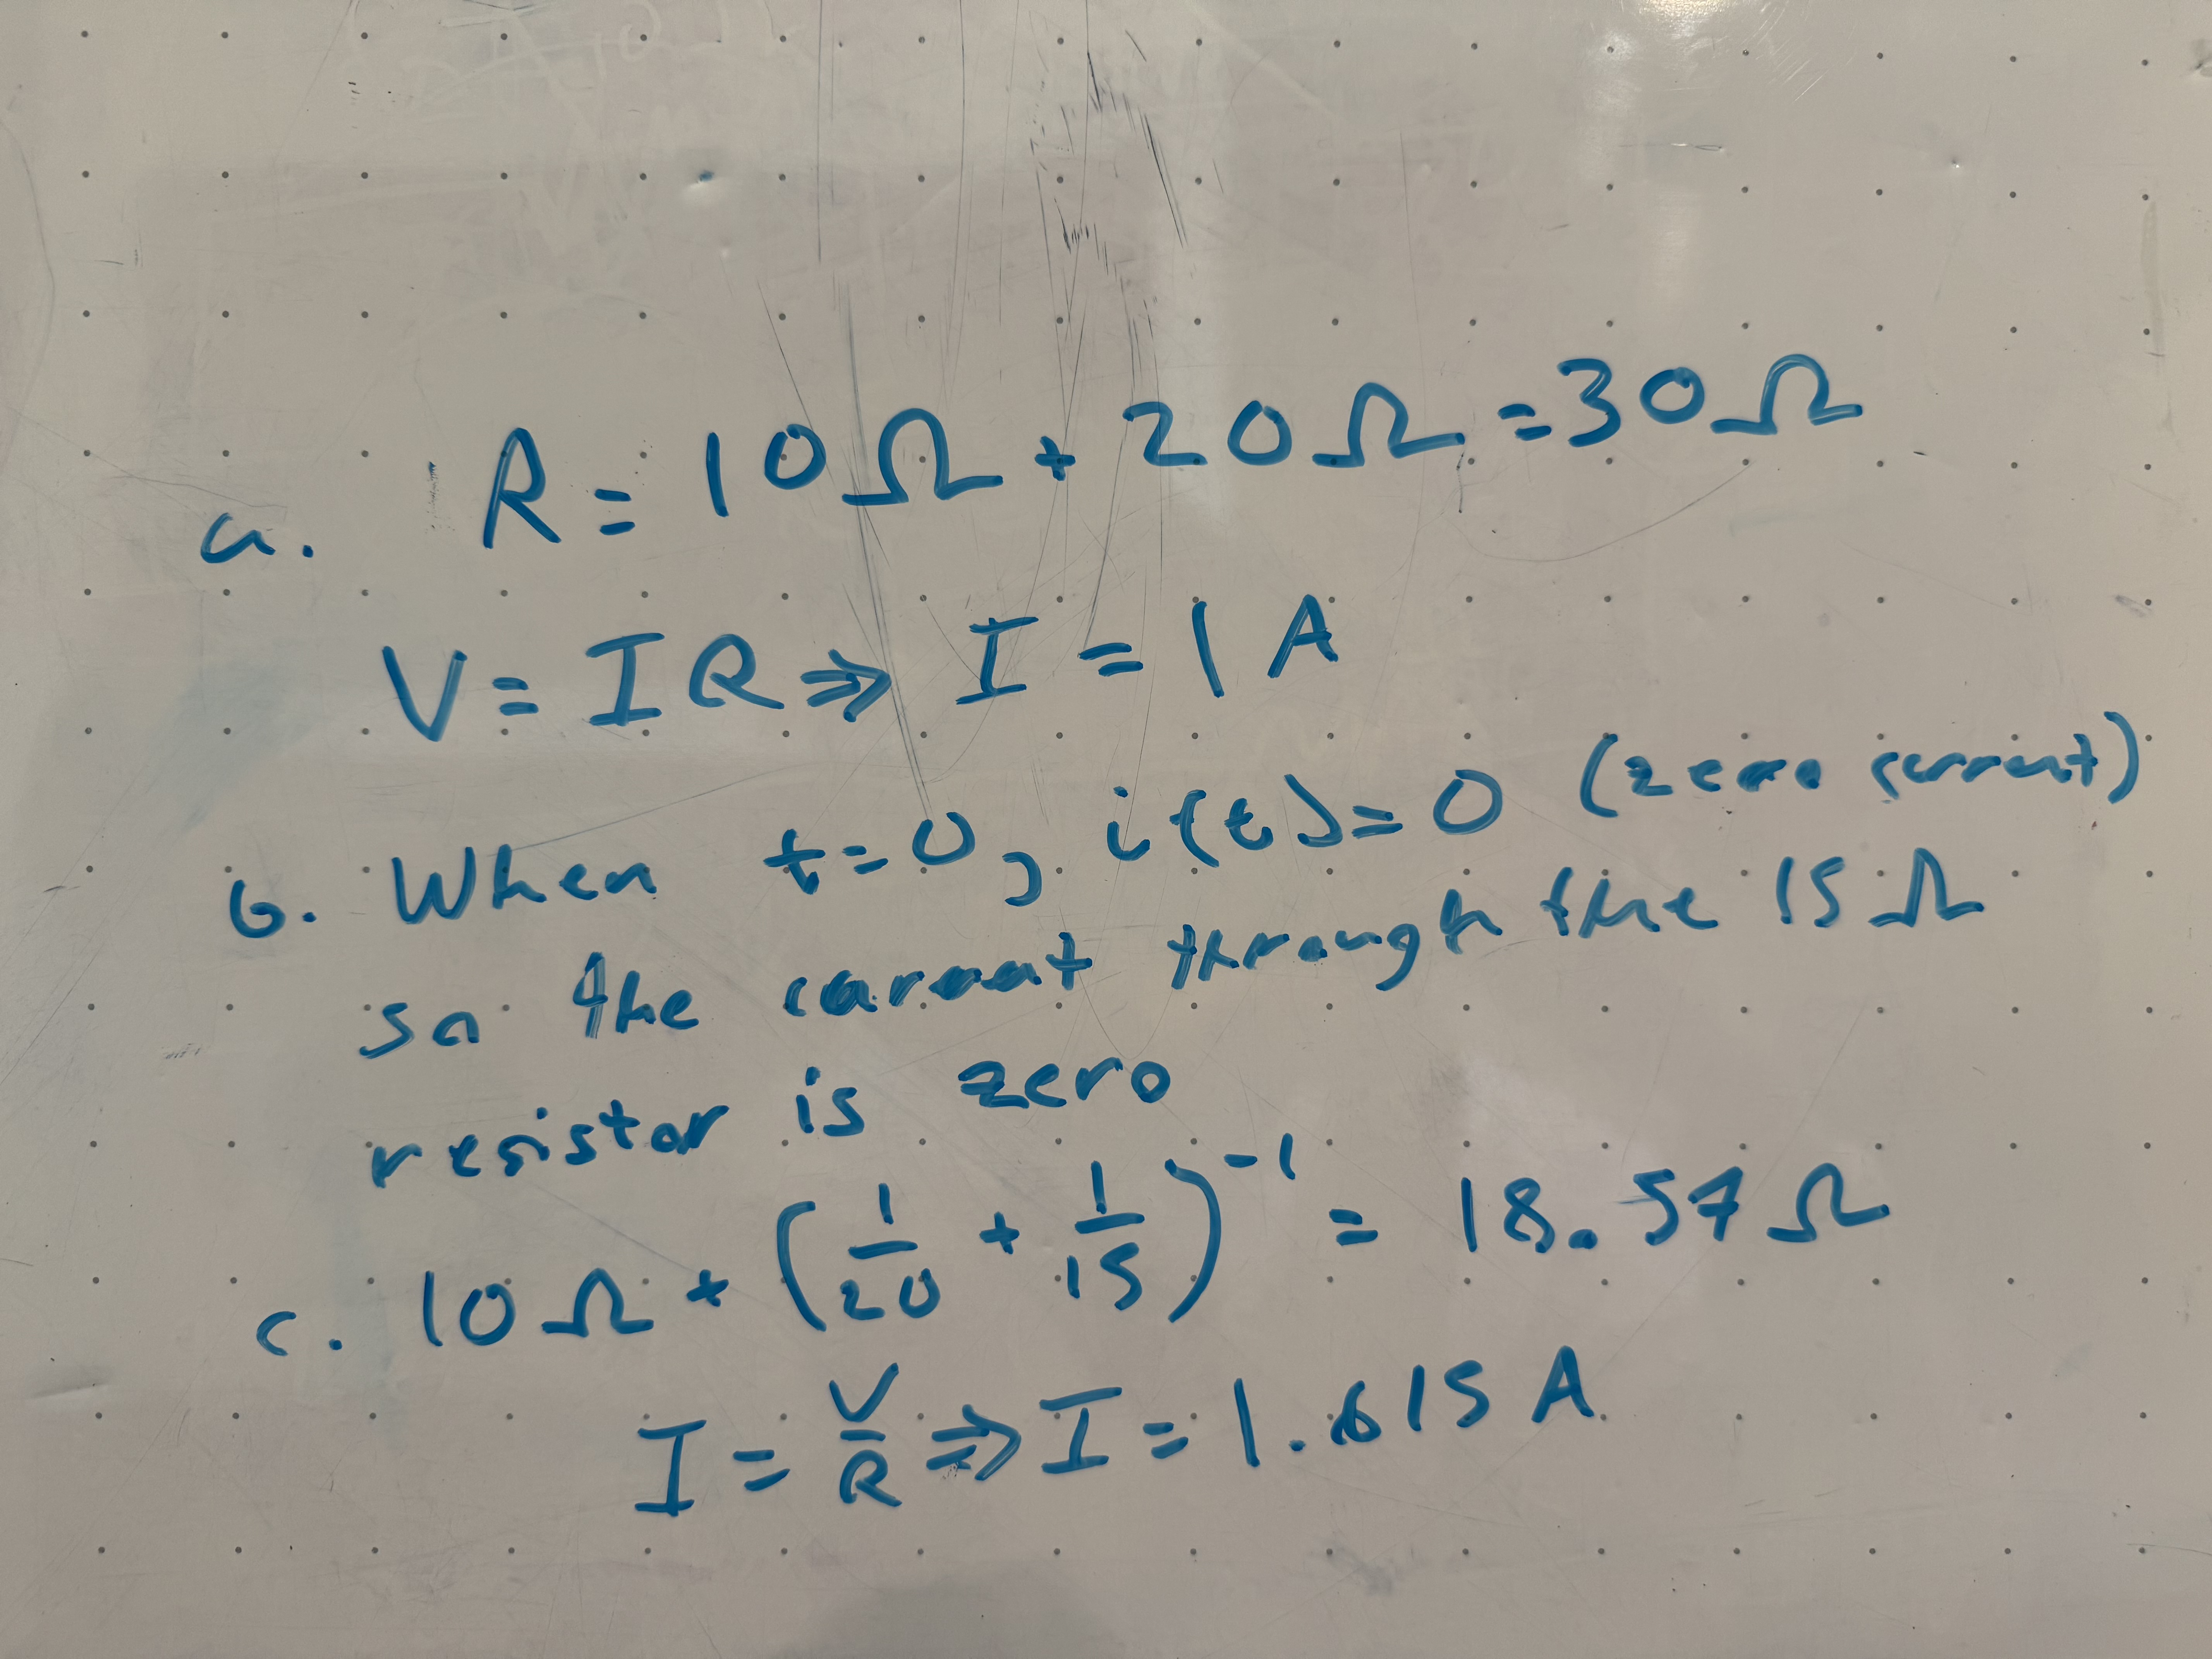 a. R = 10Ω + 20Ω = 30Ω
V = IR ⇒ I = 1 A
b. When t=0, i(t)=0 (zero current)
so the current through the 15Ω
resistor is zero
c. 10Ω + (1/20 + 1/15)^-1 = 18.57Ω
I = V/R ⇒ I = 1.615 A